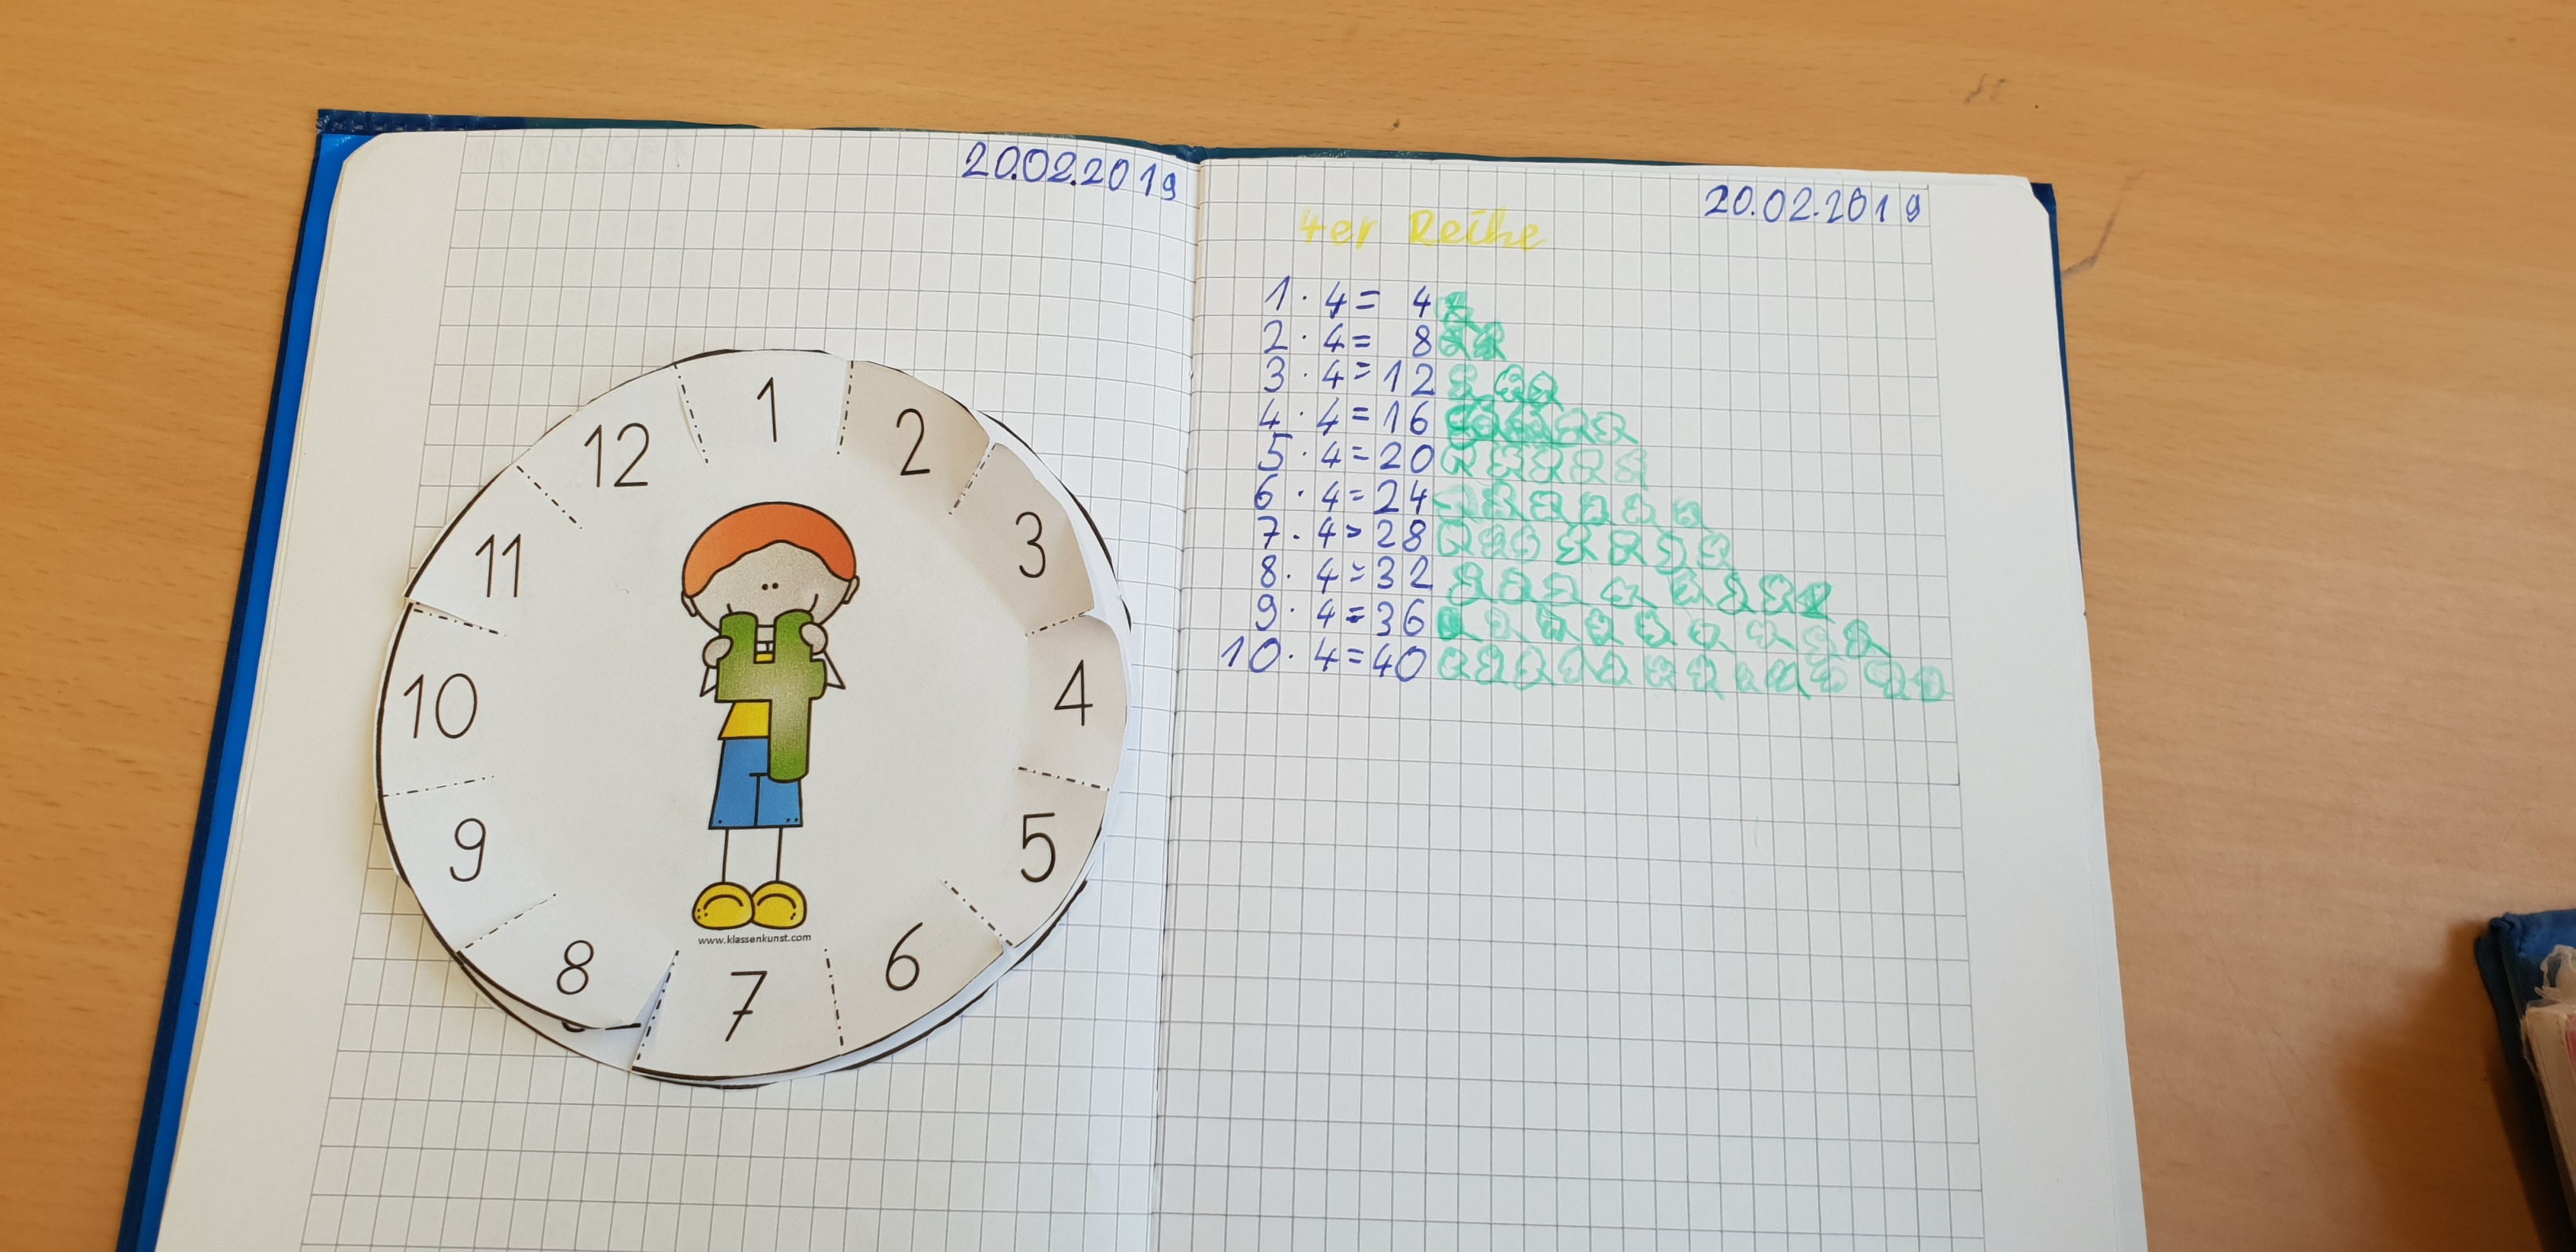 20.02.2019
1
2
3
4
5
6
7
8
9
10
11
12
www.klassenkunst.com
20.02.2019
4er Reihe
1 · 4 = 4
2 · 4 = 8
3 · 4 = 12
4 · 4 = 16
5 · 4 = 20
6 · 4 = 24
7 · 4 = 28
8 · 4 = 32
9 · 4 = 36
10 · 4 = 40